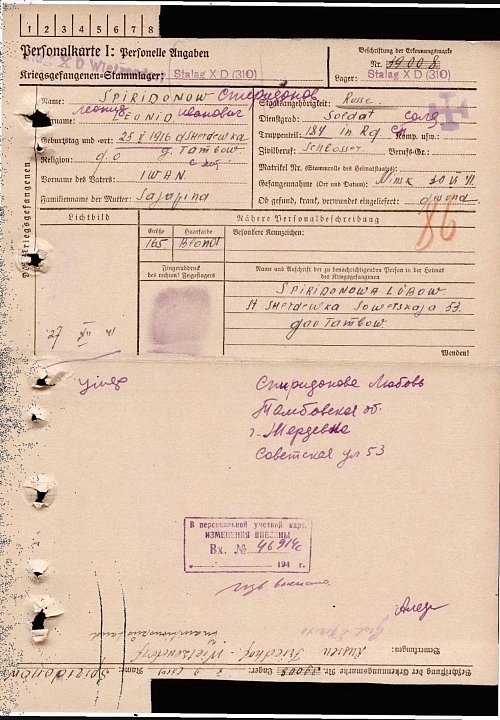 1 2 3 4 5 6 7 8
Personalkarte I: Personelle Angaben
Beschriftung der Erkennungsmarke
Nr. 39008
Kriegsgefangenen-Stammlager: Stalag X D (310)
Lager: Stalag X D (310)
Des Kriegsgefangenen
Name: SPIRIDONOW Спиридонов
Staatsangehörigkeit: Russe
Vorname: LEONID Леонид Иванович
Dienstgrad: Soldat солд
Truppenteil: 184 in. Rg Komp. usw.:
Geburtstag und -ort: 25 V 1916
Zivilberuf: Schlosser Berufs-Gr.:
g. Tambow
Religion: g.o
Matrikel Nr. (Stammrolle des Heimatstaates):
Vorname des Vaters: IWAN
Gefangennahme (Ort und Datum): Minsk
Familienname der Mutter: Sajapina
Ob gesund, krank, verwundet eingeliefert: gesund
86
Lichtbild
Nähere Personalbeschreibung
Größe Haarfarbe Besondere Kennzeichen:
165 Blond
Fingerabdruck
des rechten! Zeigefingers
Name und Anschrift der zu benachrichtigenden Person in der Heimat
des Kriegsgefangenen
SPIRIDONOWA LÜBOW
St. Sowetskaja 53.
Tambow
27 41
Wenden!
Спиридонова Любовь
Тамбовская об.
г. Мердевка
Советская ул 53
В персональной учетной карт.
ИЗМЕНЕНИЯ ВНЕСЕНЫ
Вх. № 46914с
194 г.
Bemerkungen: Russen Friedhof - Wietzendorf
Beschriftung der Erkennungsmarke Nr. 39008
Lager:
Name: Spiridonow